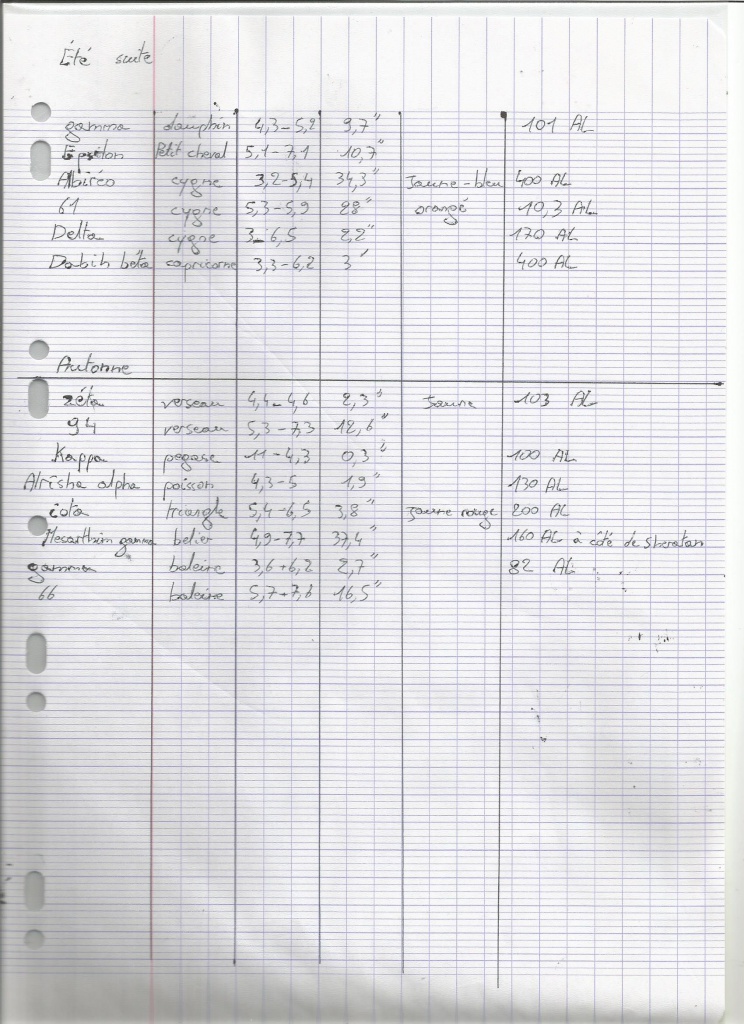 Été suite
gamma dauphin 4,3-5,2 9,7" 101 AL
Epsilon Petit cheval 5,1-7,1 10,7"
Albiréo cygne 3,2-5,4 34,3" Jaune-bleu 400 AL
61 cygne 5,3-5,9 28" orangé 10,3 AL
Delta cygne 3-6,5 2,2" 170 AL
Dabih bêta capricorne 3,3-6,2 3' 400 AL
Automne
zéta verseau 4,4-4,6 2,3" Jaune 103 AL
94 verseau 5,3-7,3 12,6"
Kappa pegase 11-4,3 0,3" 100 AL
Alrisha alpha poisson 4,3-5 1,9" 130 AL
iota triangle 5,4-6,5 3,8" Jaune rouge 200 AL
Mesarthim gamma belier 4,9-7,7 37,4" 160 AL à côté de Sheratan
gamma baleine 3,6+6,2 2,7" 82 AL
66 baleine 5,7+7,6 16,5"